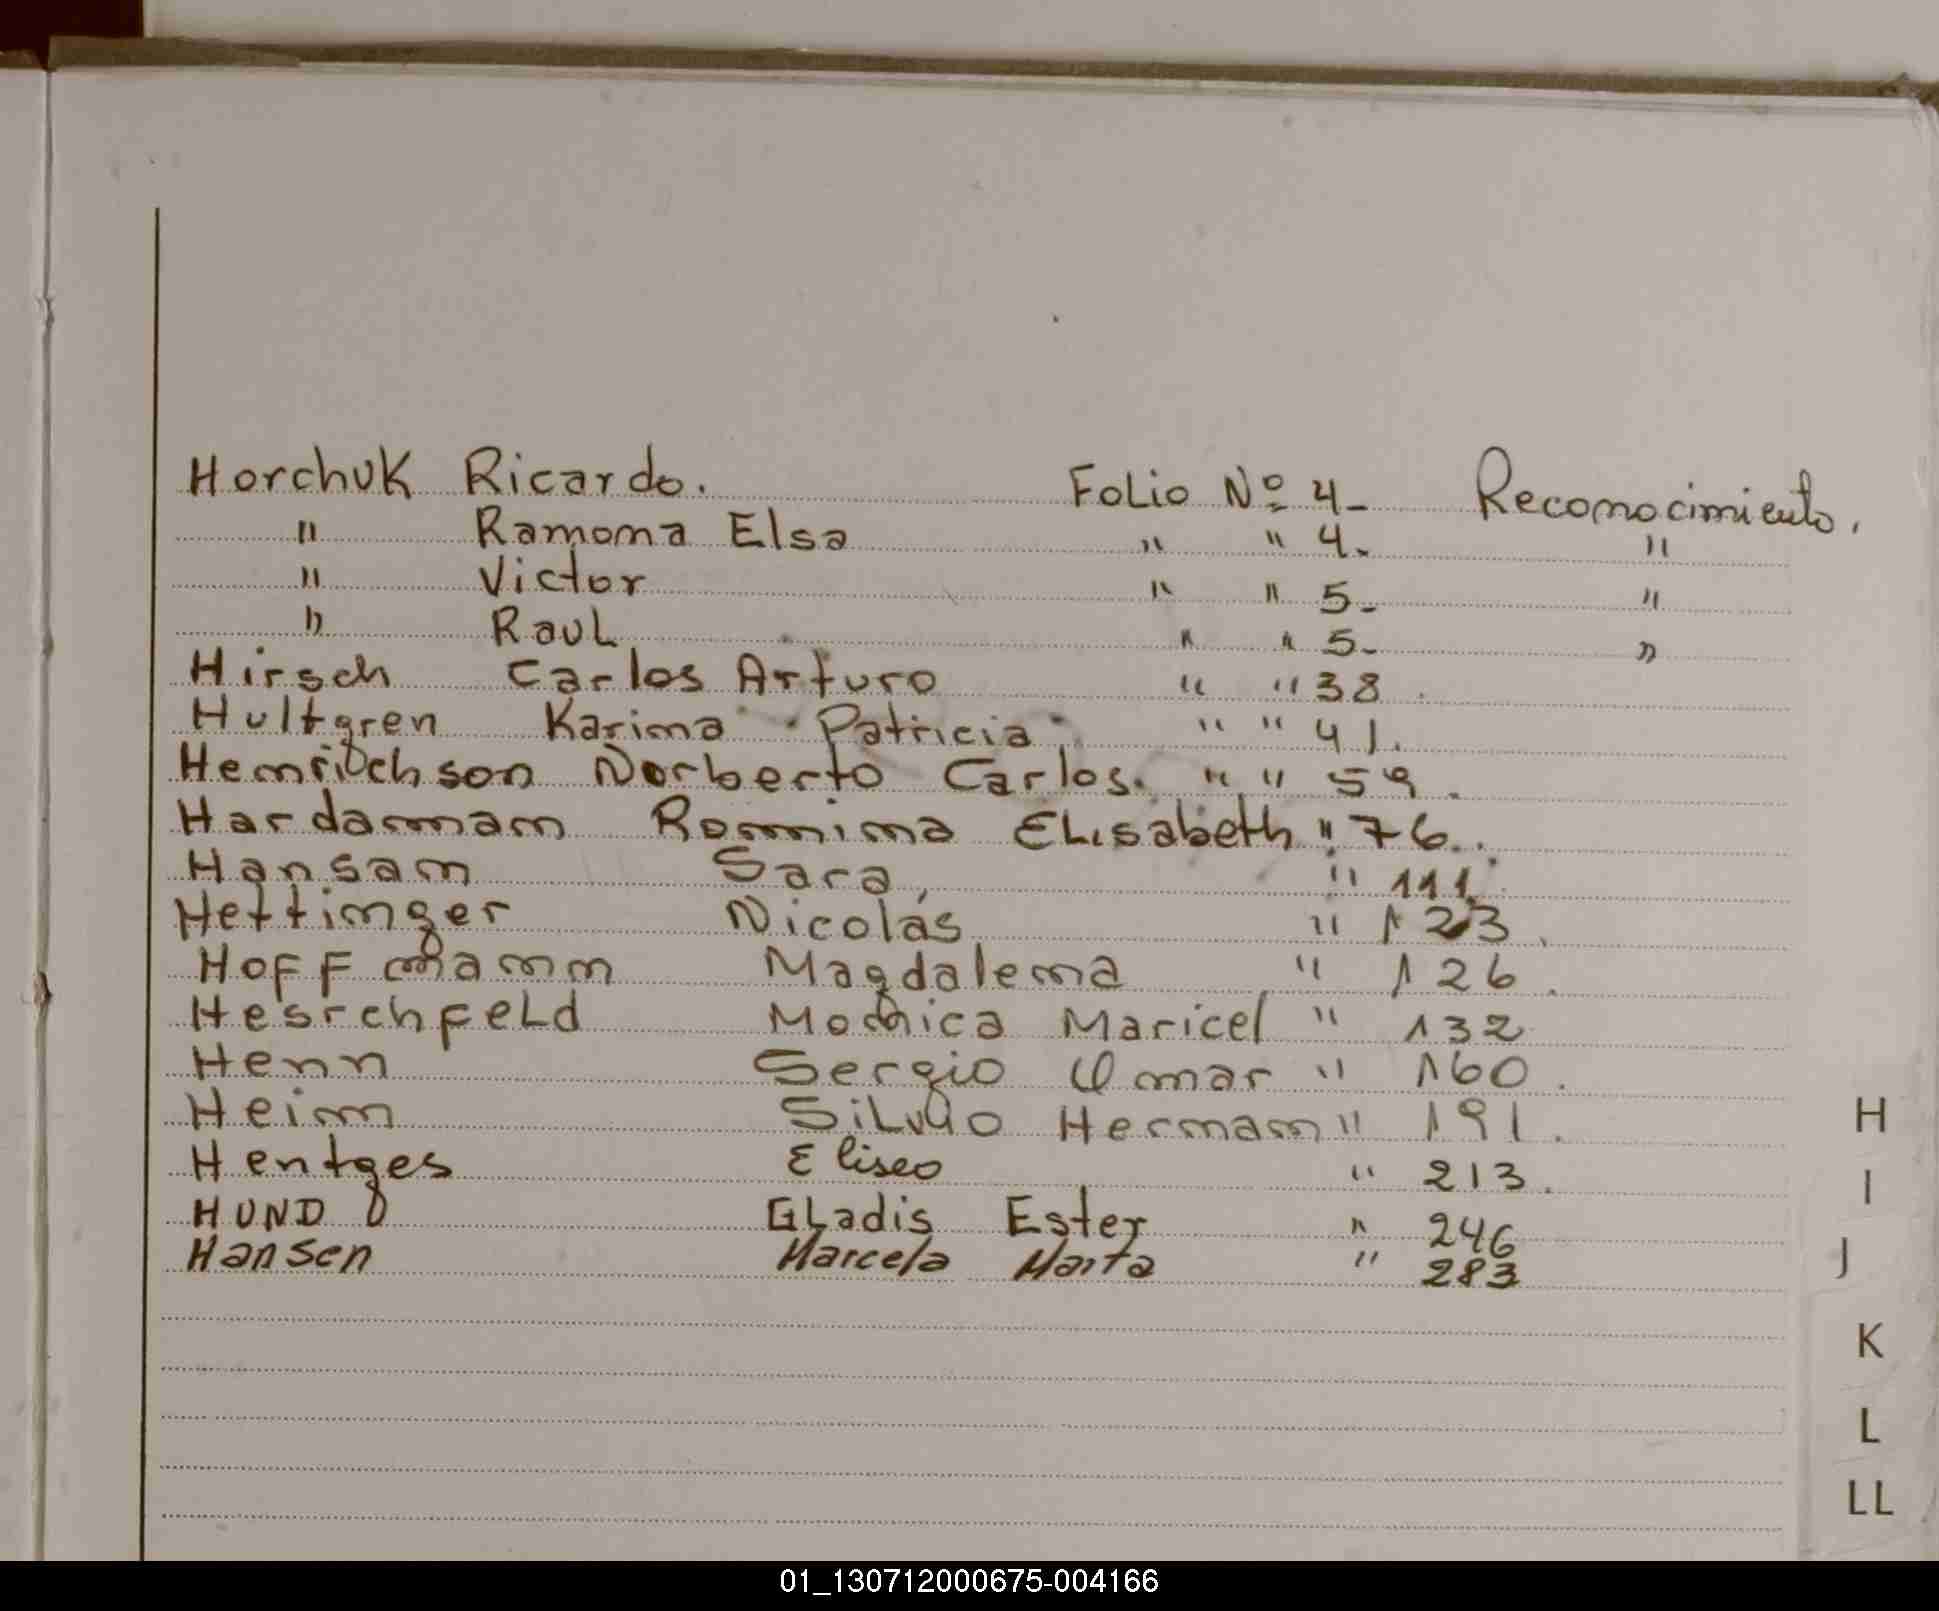 Horchuk Ricardo. Folio Nº 4- Reconocimiento.
" Ramona Elsa " " 4. "
" Victor " " 5- "
" Raul " " 5- "
Hirsch Carlos Arturo " " 38.
Hultgren Karina Patricia " " 41.
Henrichson Norberto Carlos. " " 59.
Hardamam Romina Elisabeth " 76.
Hansam Sara, " 111.
Hettinger Nicolás " 123.
Hoffmann Magdalena " 126.
Hesrchfeld Monica Maricel " 132
Henn Sergio Omar " 160.
Heim Silvio Hernan " 191.
Hentges Eliseo " 213.
HUND Gladis Ester " 246
Hansen Marcela Marta " 283
H
I
J
K
L
LL
01_130712000675-004166